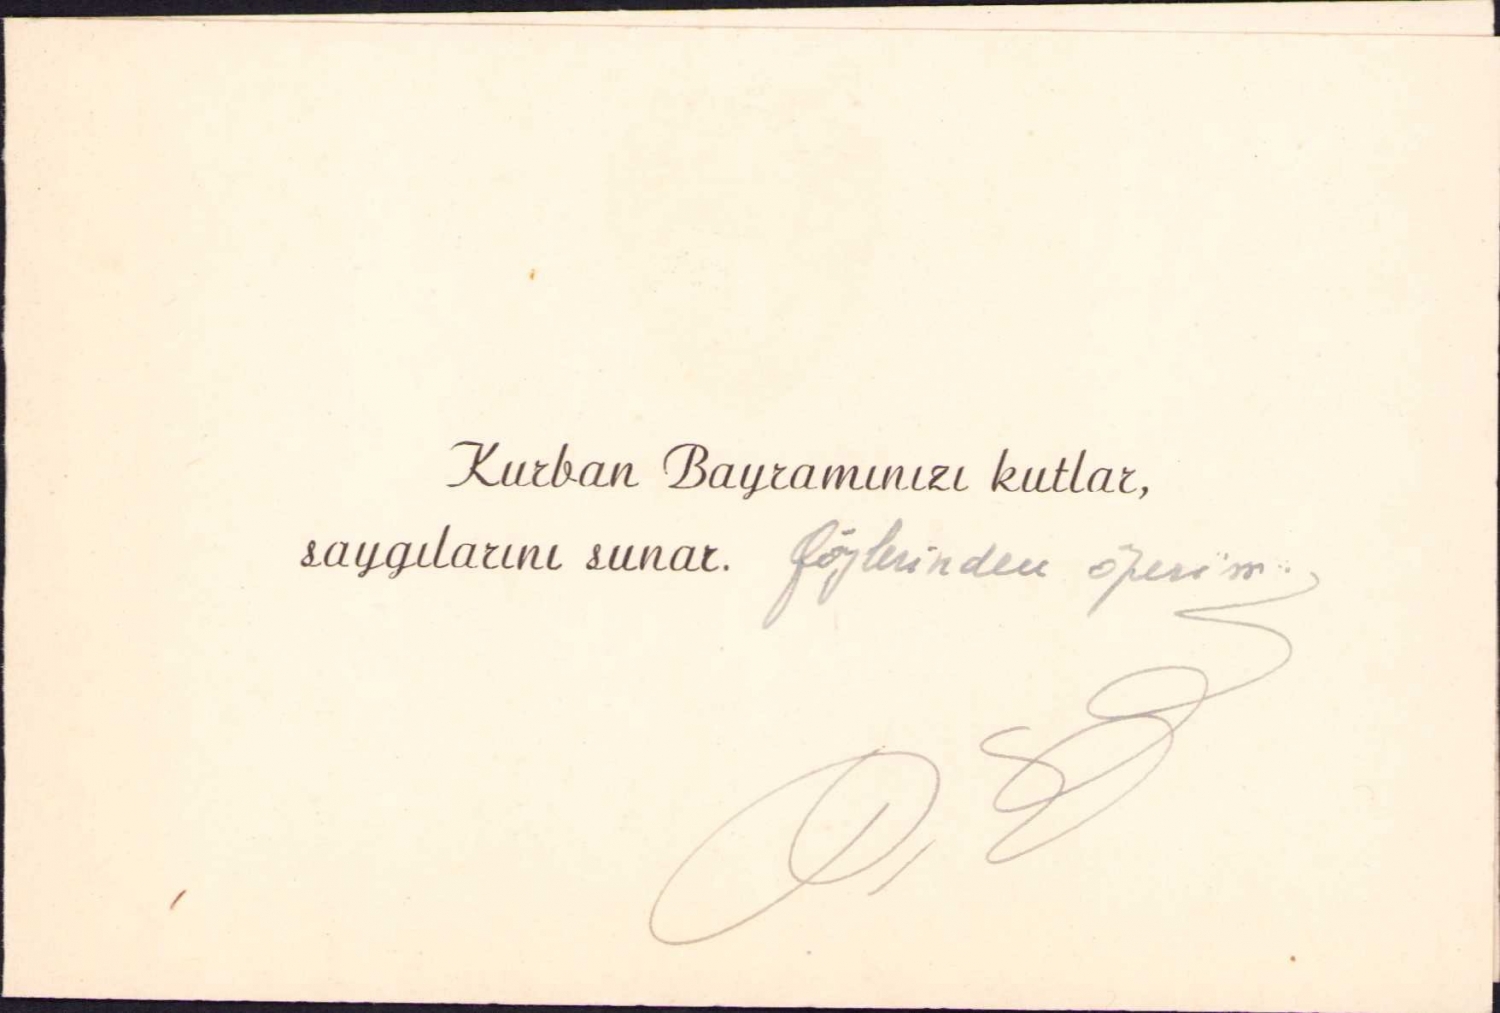 Kurban Bayramınızı kutlar,
saygılarını sunar. Gözlerinden öperim..